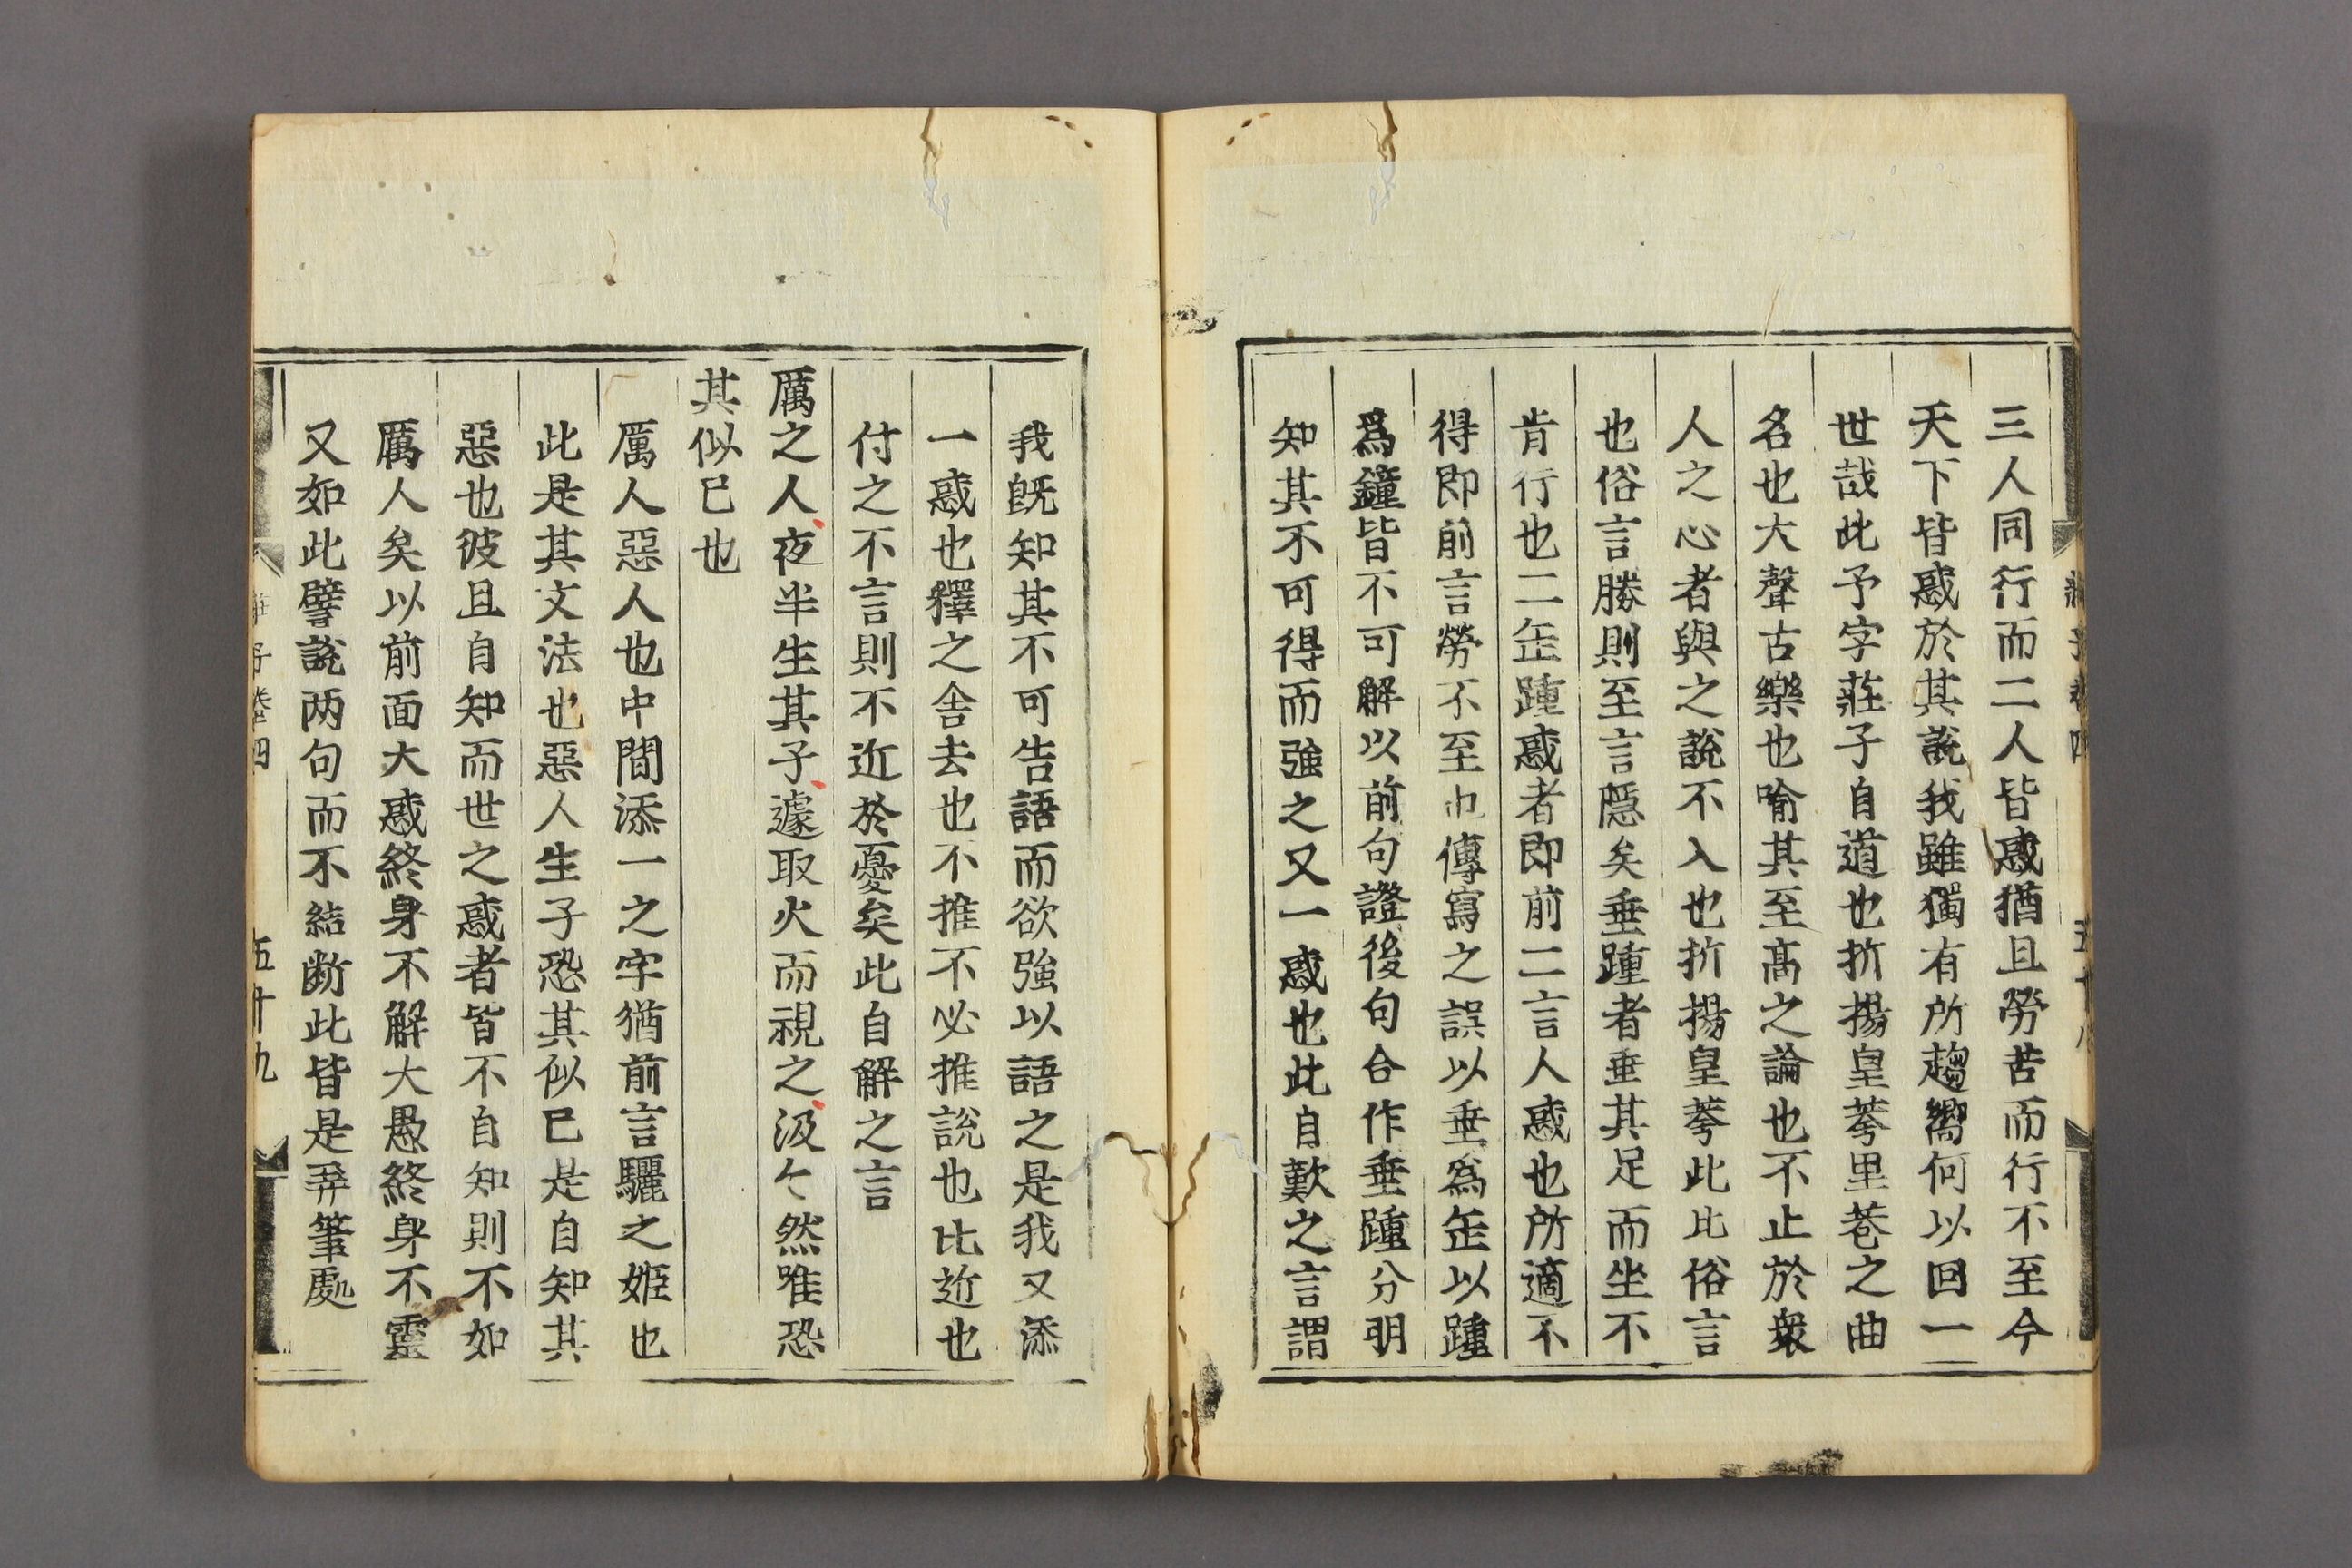 三人同行而二人皆惑猶且勞苦而行不至今
天下皆惑於其說我雖獨有所趨嚮何以回一
世哉此予字莊子自道也折揚皇荂里巷之曲
名也大聲古樂也喻其至髙之論也不止於衆
人之心者與之說不入也折揚皇荂此比俗言
也俗言勝則至言隱矣垂踵者垂其足而坐不
肯行也二缶踵惑者即前二言人惑也所適不
得即前言勞不至也傳寫之誤以垂爲缶以踵
爲鐘皆不可解以前句證後句合作垂踵分明
知其不可得而強之又一惑也此自歎之言謂
我旣知其不可告語而欲強以語之是我又添
一惑也釋之舍去也不推不必推說也比近也
付之不言則不近於憂矣此自解之言
厲之人夜半生其子遽取火而視之汲々然唯恐
其似已也
厲人惡人也中間添一之字猶前言驪之姬也
此是其文法也惡人生子恐其似已是自知其
惡也彼且自知而世之惑者皆不自知則不如
厲人矣以前面大惑終身不解大愚終身不靈
又如此譬說两句而不結断此皆是弄筆處
莊子卷四
五十九